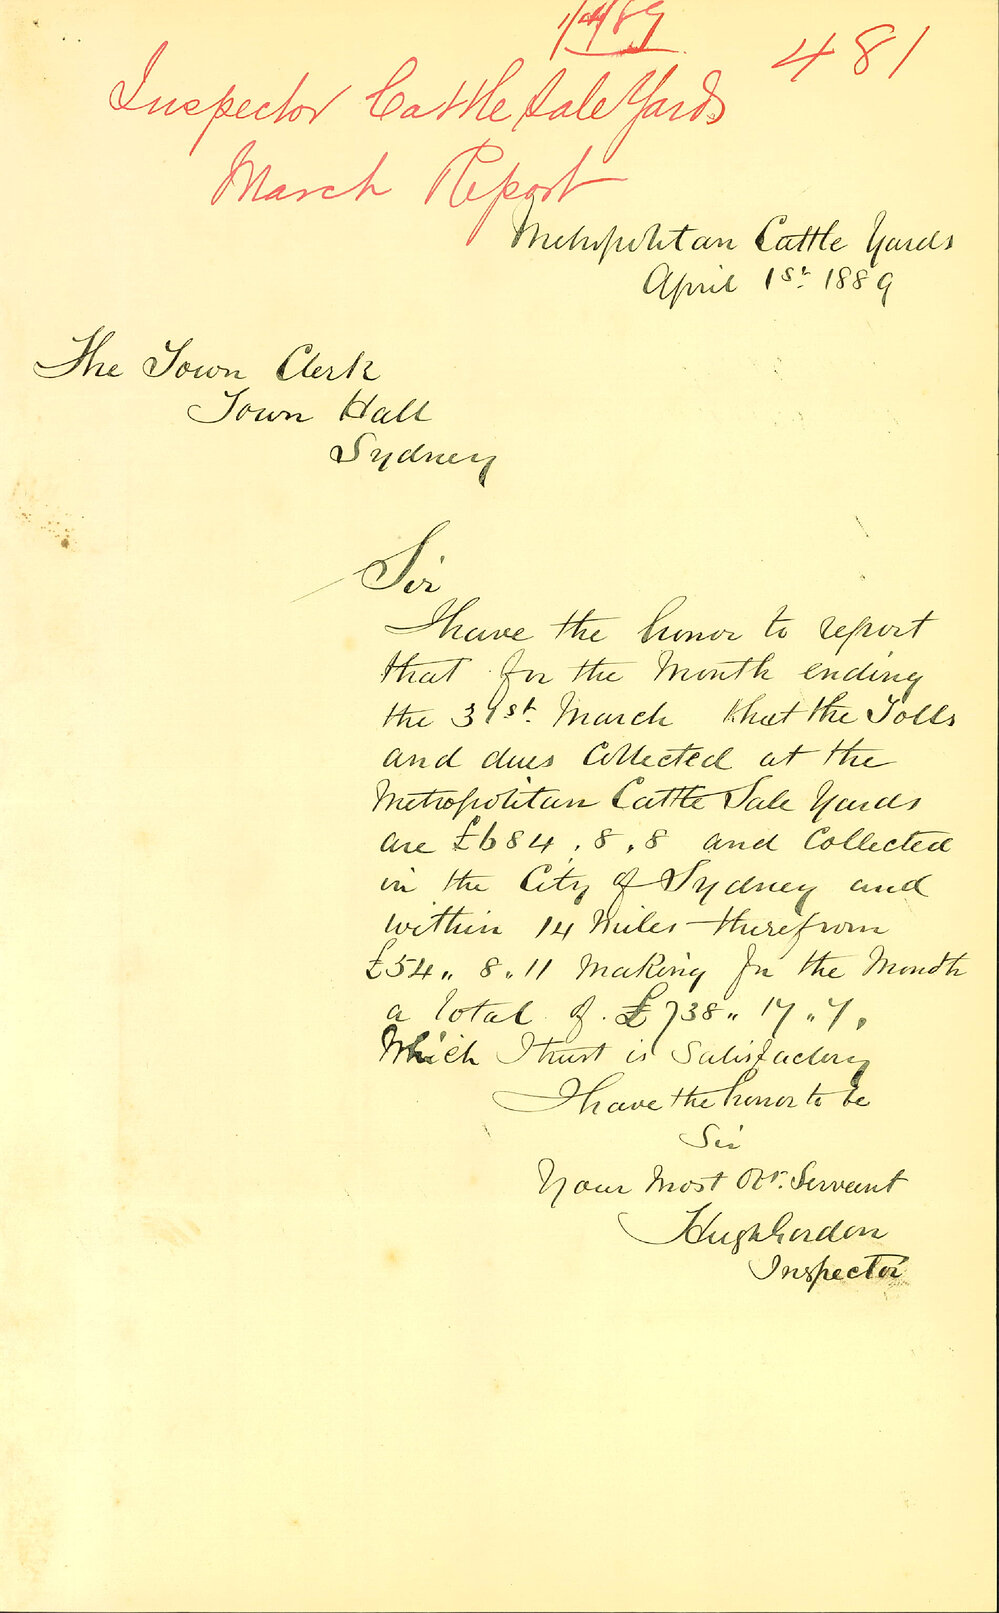 1/4/89
481
Inspector Cattle Sale Yards
March Report
Metropolitan Cattle Yards
April 1st. 1889
The Town Clerk
Town Hall
Sydney
Sir
I have the honor to report
that for the Month ending
the 31st. March that the Tolls
and dues Collected at the
Metropolitan Cattle Sale Yards
are £684.8.8 and Collected
in the City of Sydney and
within 14 Miles therefrom
£54,, 8,, 11 Making for the Month
a total of £738,, 17,, 7.
Which I trust is Satisfactory
I have the honor to be
Sir
Your Most Obt. Servant
Hugh Gordon
Inspector